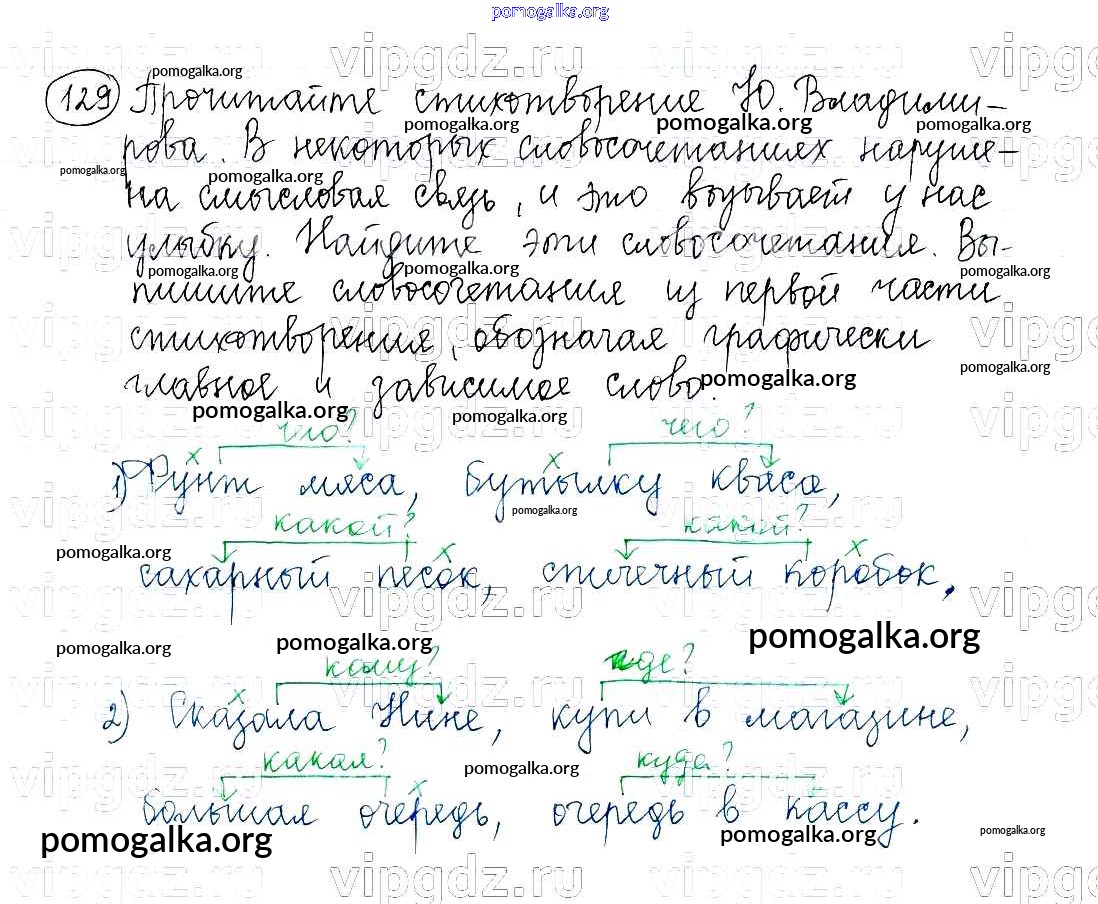 pomogalka.org
129 Прочитайте стихотворение Ю. Владими-
рова. В некоторых словосочетаниях наруше-
на смысловая связь, и это вызывает у нас
улыбку. Найдите эти словосочетания. Вы-
пишите словосочетания из первой части
стихотворения, обозначая графически
главное и зависимое слово.
что? чего?
x x
1) Фунт мяса, бутылку кваса,
какой? какой?
x x
сахарный песок, спичечный коробок,
кому? где?
x
2) Сказала Нине, купи в магазине,
какая? куда?
x
большая очередь, очередь в кассу.
pomogalka.org
vipgdz.ru